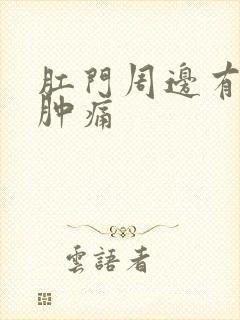 肛門周邊有
肿痛
雲語者